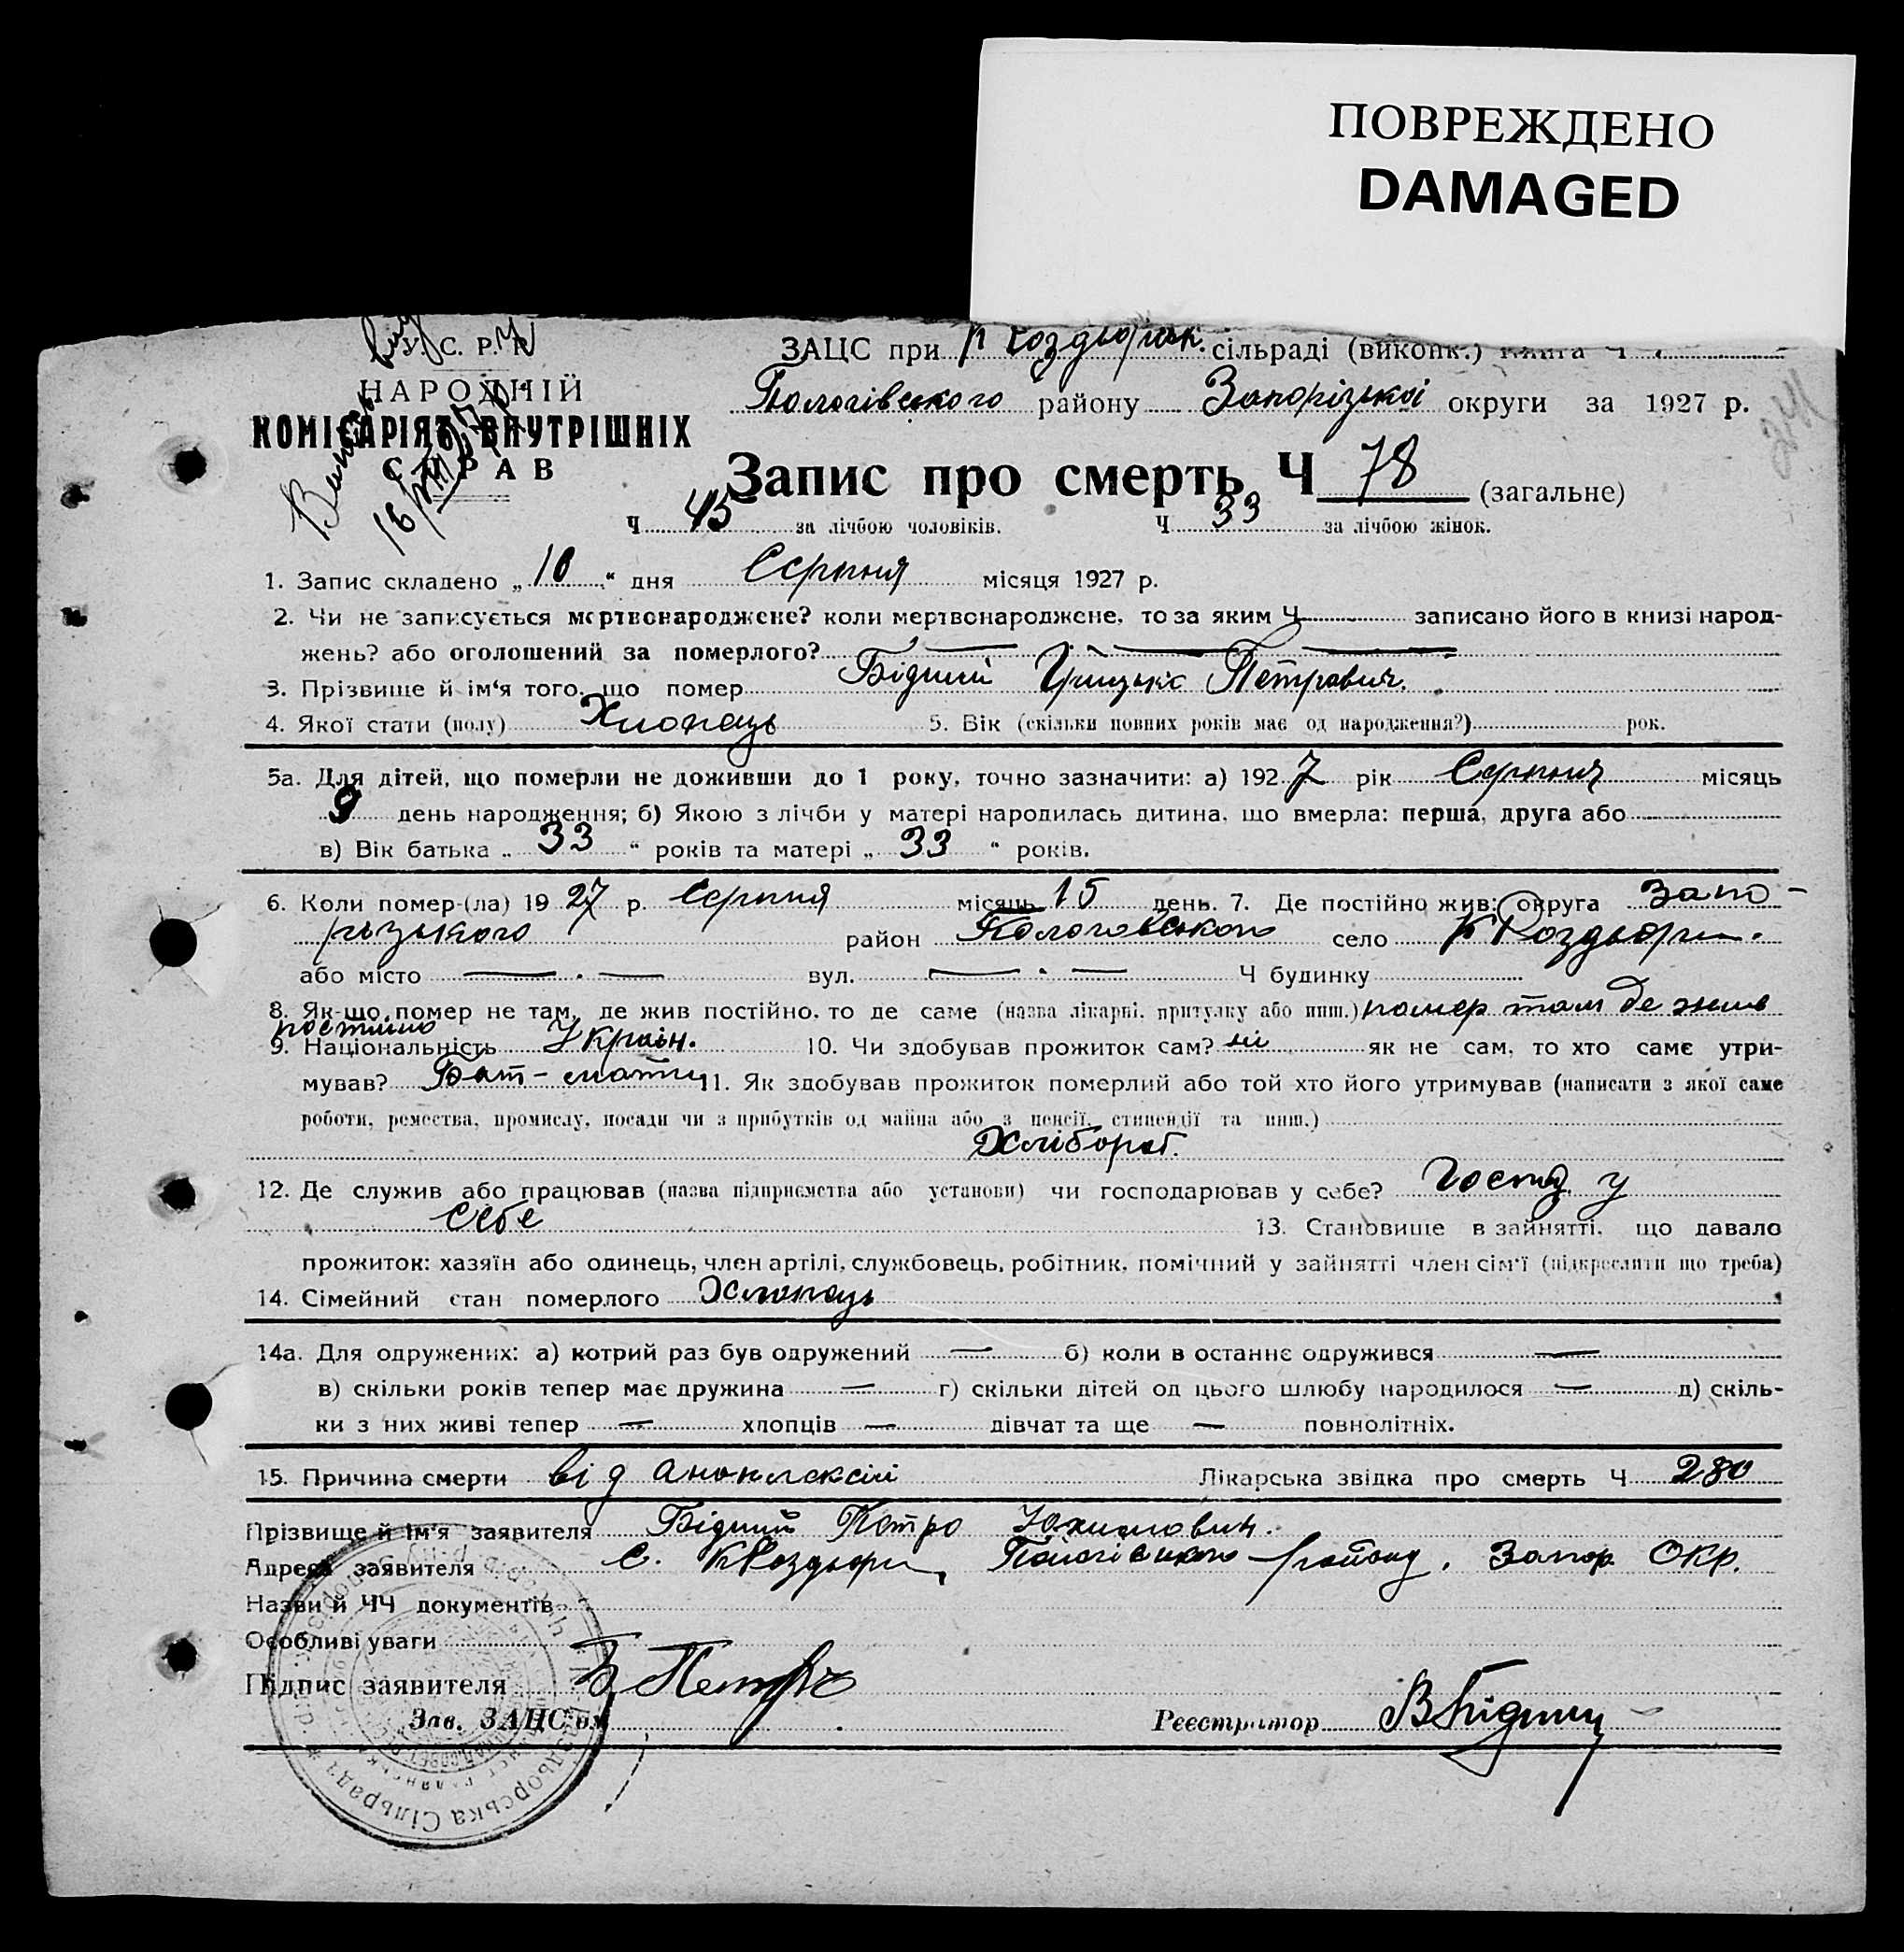 ПОВРЕЖДЕНО
DAMAGED
У. С. Р. Р.
ЗАЦС при К Роздорск. сільраді (виконк.) Книга Ч
НАРОДНІЙ
Пологівського району Запорізькоі округи за 1927 р.
КОМІСАРІЯТ ВНУТРІШНІХ
СПРАВ
Запис про смерть Ч 78 (загальне)
Ч 45 за лічбою чоловіків. Ч 33 за лічбою жінок.
1. Запис складено „ 10 “ дня Серпня місяця 1927 р.
2. Чи не записується мертвонароджене? коли мертвонароджене, то за яким Ч записано його в книзі народ-
жень? або оголошений за померлого?
3. Прізвище й ім‘я того, що помер Бідний Грицько Петрович.
4. Якої стати (полу) Хлопець 5. Вік (скільки повних років має од народження?) рок.
5а. Для дітей, що померли не доживши до 1 року, точно зазначити: а) 1927 рік Серпня місяць
9 день народження; б) Якою з лічби у матері народилась дитина, що вмерла: перша, друга або
в) Вік батька „ 33 “ років та матері „ 33 “ років.
6. Коли помер-(ла) 1927 р. Серпня місяць 15 день. 7. Де постійно жив: округа Запо-
різького район Пологовського село К Роздори.
або місто — . — вул. — . — Ч будинку
8. Як-що помер не там, де жив постійно, то де саме (назва лікарні, притулку або инш.) помер там де жив
постійно
9. Національність Украін. 10. Чи здобував прожиток сам? ні як не сам, то хто саме утри-
мував? Бат - мати 11. Як здобував прожиток померлий або той хто його утримував (написати з якої саме
роботи, ремества, промислу, посади чи з прибутків од майна або з пенсії, стипендії та инш.)
Хлібороб.
12. Де служив або працював (назва підприємства або установи) чи господарював у себе? Господ. у
себе 13. Становище в зайнятті, що давало
прожиток: хазяїн або одинець, член артілі, службовець, робітник, помічний у зайнятті член сім'ї (підкреслити що треба)
14. Сімейний стан померлого Хлопець
14а. Для одружених: а) котрий раз був одружений — б) коли в останнє одружився —
в) скільки років тепер має дружина — г) скільки дітей од цього шлюбу народилося — д) скіль-
ки з них живі тепер — хлопців — дівчат та ще — повнолітніх.
15. Причина смерти від апоплексіі Лікарська звідка про смерть Ч 280
Прізвище й ім'я заявителя Бідний Петро
Адреса заявителя С. К Роздори, Пологівського району, Запор. Окр.
Назви й ЧЧ документів
Особливі уваги
Підпис заявителя Б Петро
Зав. ЗАЦС'ом Реєстратор В Бідний